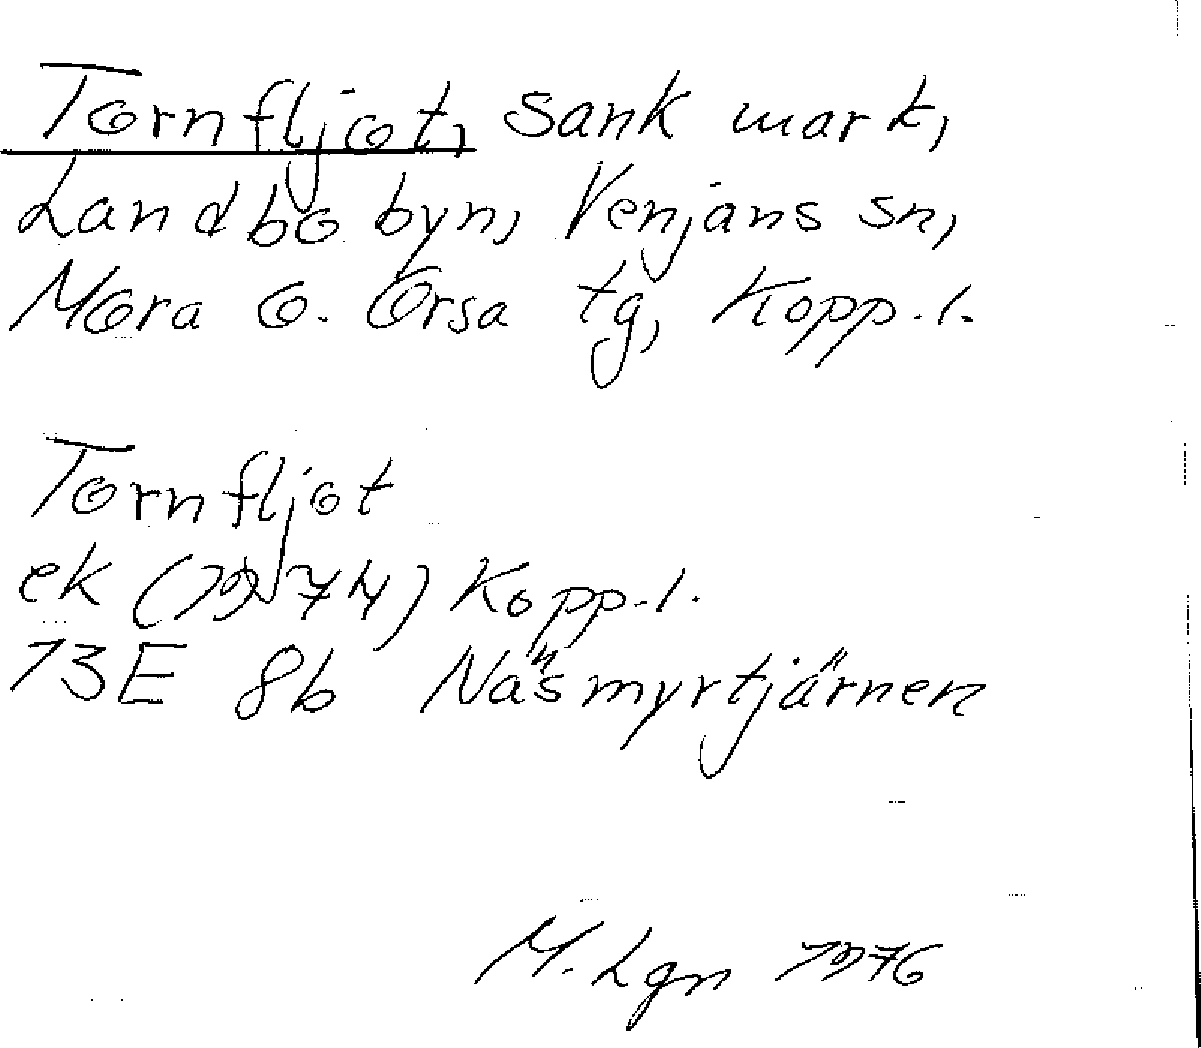 Tornfljot, sank mark,
Landbobyn, Venjans sn,
Mora o. Orsa tg, Kopp.l.
Tornfljot
ek (1974) Kopp.l.
13E 8b Näsmyrtjärnen
M. Lgn 1976